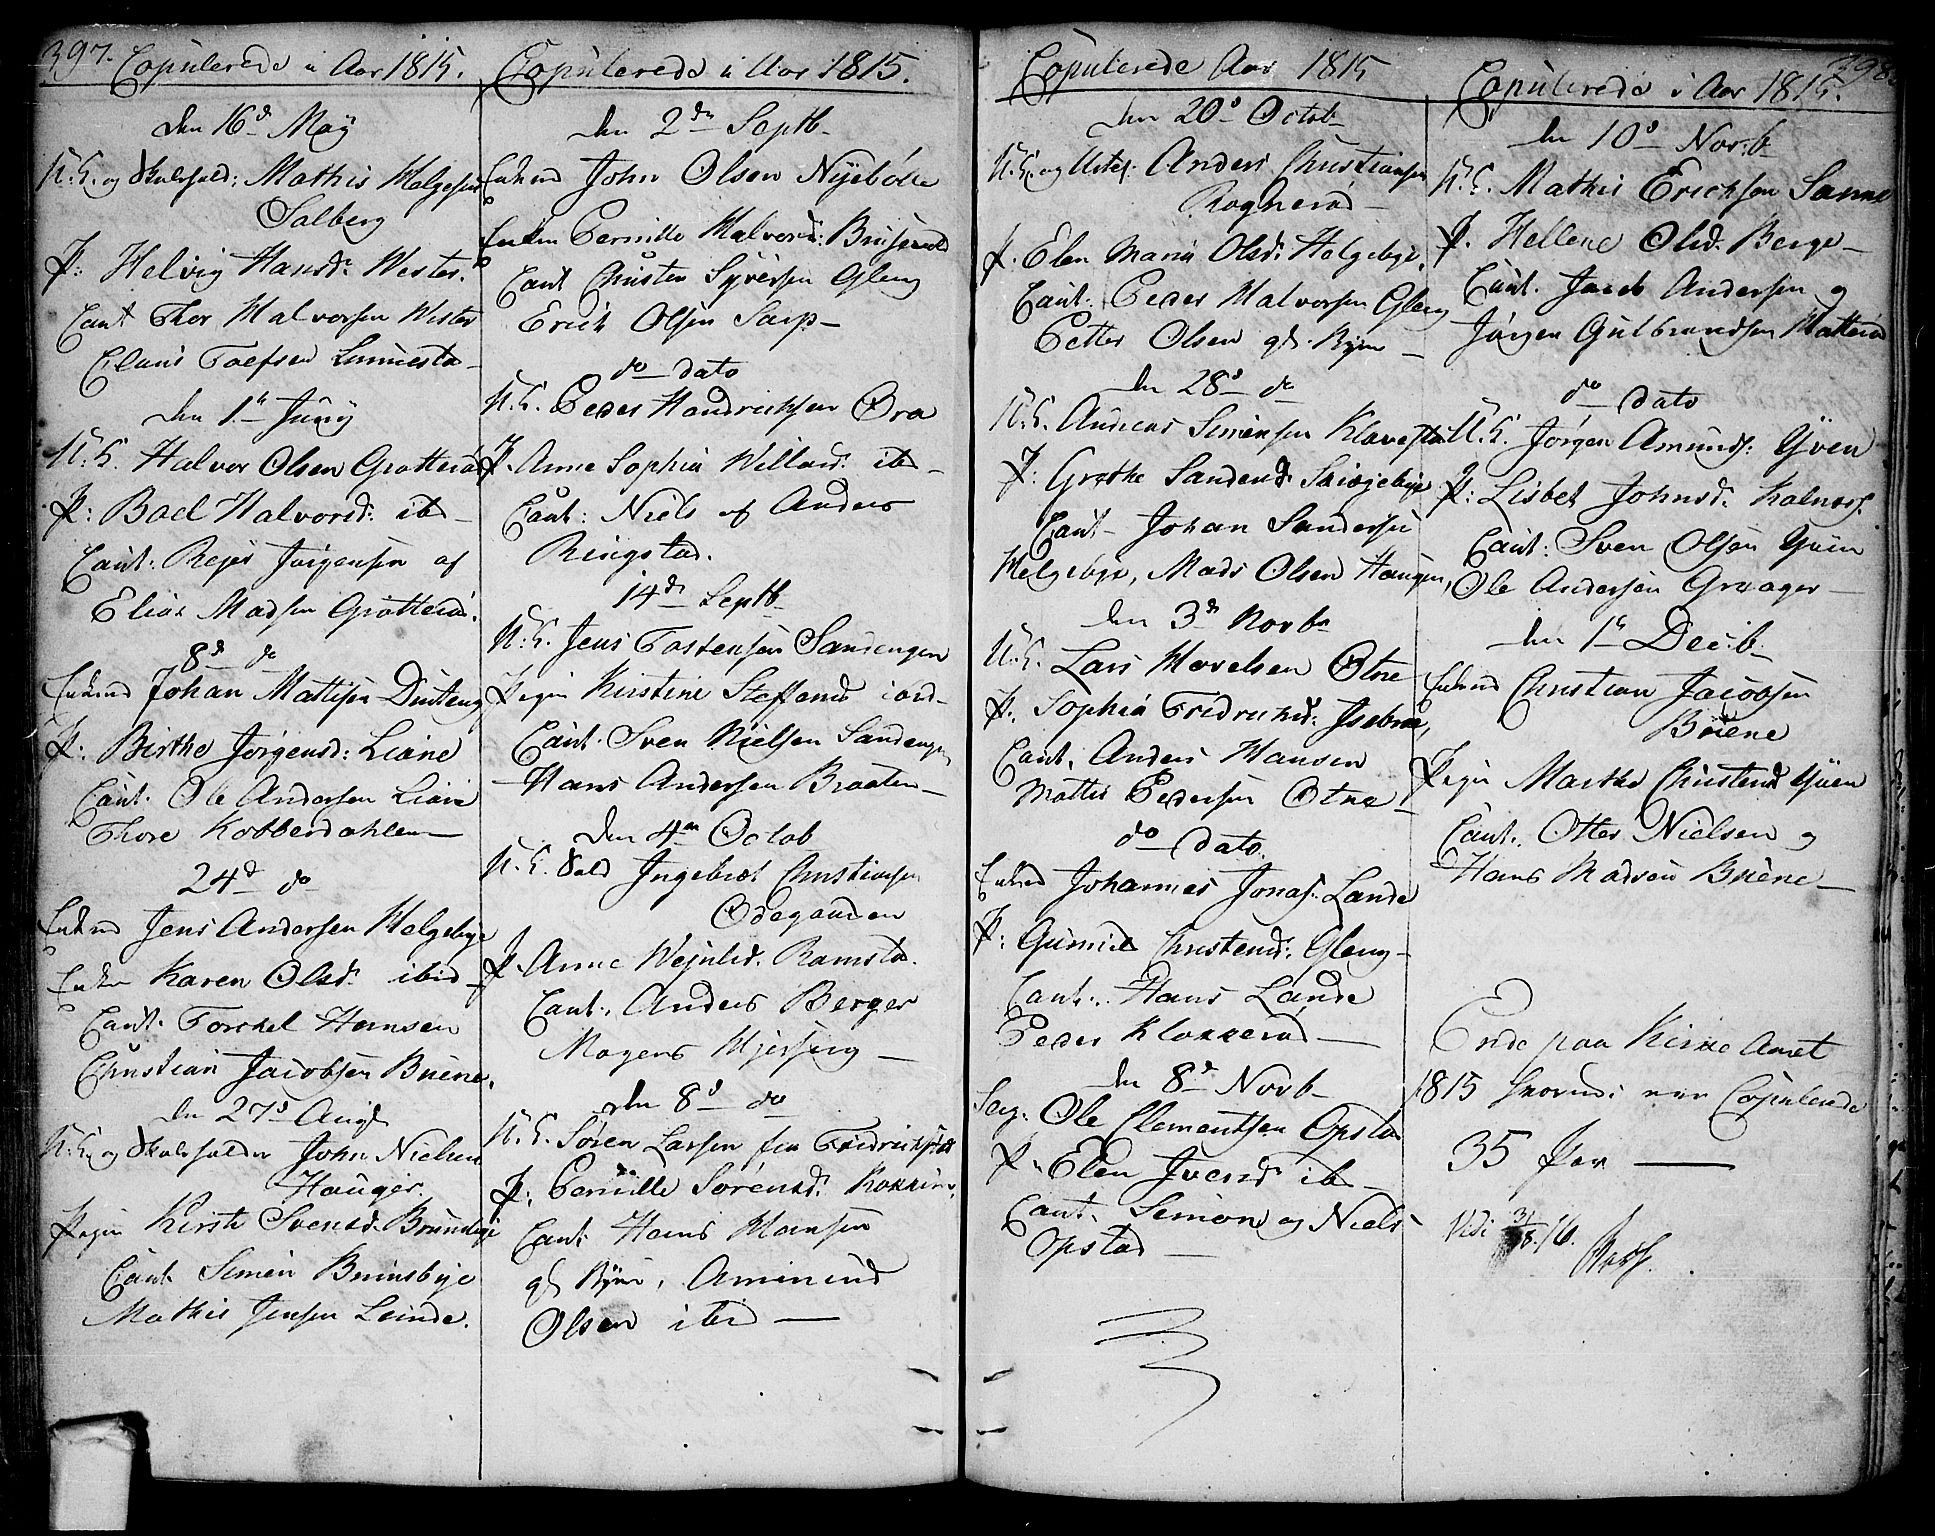 397. Copulerede i Aar 1815.
den 16d May
U.K. og Mathis Helgesen
Solberg
P: Helvig Hansd. Wester.
Caut Thor Halvorsen Wester
Claus Toefsen Lunnesta
den 1te Juny
U.K. Halvor Olsen Grotterød
P: Boel Halvorsd: ibd
Caut. Rejer Jørgensen af
Elias Madsen Grotterød.
8d do
Enkmd Johan Mattisen
P: Birthe Jørgensd: Liane
Caut. Ole Andersen Liane
Thore Kobberdahlen
24d do
Enkmd Jens Andersen Helgebye
Enken Karen Olsd. ibid
Caut. Torckel Hansen
Christian Jacobsen Buene.
den 27d Augt
U.K. og John Nielsen
Hauger.
Pigen Kirsti Svensd. Brunsbye
Caut. Simen Brunsbye
Mathis Jensen Lunde.
Copulerede i Aar 1815.
den 2den Septb
Enkmd John Olsen Nyebølle
Enken Pernille Halvorsd:
Caut Christen Syversen Gleng
Erich Olsen Sarp
do dato
U.K. Peder Handrichsen Ora
P. Anne Sophia Willads: ibd
Caut: Niels og Anders
Ringstad.
14de Septb
U.K. Jens Tostensen Sandengen
Pigen Kirstine Steffensd
Caut. Sven Nielsen Sandengen
Hans Andersen Braaten
den 4de Octob
U.K. Sold Ingebret Christiansen
Ødegaarden
P. Anne Ramsta.
Caut. Anders Berger
Mogens Hjersing
den 8d do
U.K. Søren Larsen fra Fredrikstad
P: Pernille Sørensd.
Caut. Hans Hansen
gl. Byen, Aminund
Olsen ibid
Copulerede Aar 1815
den 20d Octob
U.K. og Anders Christiansen
Rognerød
P. Elen Maria Olsd: Helgebye.
Caut. Peder Halvorsen Gleng
Petter Olsen gl. Byen
den 28d do
U.K. Andreas Simensen Klavesta
P: Grethe Sandersd.
Caut Johan Sandersen
Helgebye, Mads Olsen Haugen,
den 3de Novbr
U.K. Lars Hovelsen Otne
P. Sophia Fredrichsd: Isebroe,
Caut. Anders Hansen
Mattis Pedersen Otne
do dato.
Enkmd Johannes Jonas: Lande
P: Gunnild Christensd: Gleng
Caut. Hans Lande
Peder Klokkerød
den 8d Novb
Serg: Ole Clementsen Opstad
P. Elen Iversd ibd
Caut. Simon og Niels
Opstad
398.
Copulerede i Aar 1815.
den 10d Novb
U.K. Mathis Ericksen Sanne
P. Hellene Olsd. Berge
Caut. Jacob Andersen og
Jørgen Gulbrandsen Hatterød
do dato
U.K. Jørgen Amunds: Yven
P: Lisbet Johnsd. Kalnes.
Caut: Sven Olsen Yven
Ole Andersen Graager
den 1te Decb.
Enkmd Christian Jacobsen
Buene
Pigen Marthe Christensd Yven
Caut. Otter Nielsen og
Hans Madsen Buene
Ende paa Kirke Aaret
1815 hvorudi ere Copulerede
35 Par
Vidi 31/8.16.